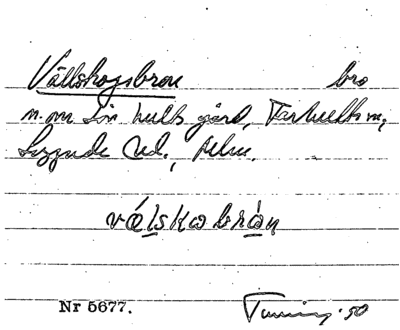 Vällskogsbron bro
n. om Lönhults gård, Farhults sn,
Luggude hd., Felm.
vålskabrån
Nr 5677.
Tuneng. '50